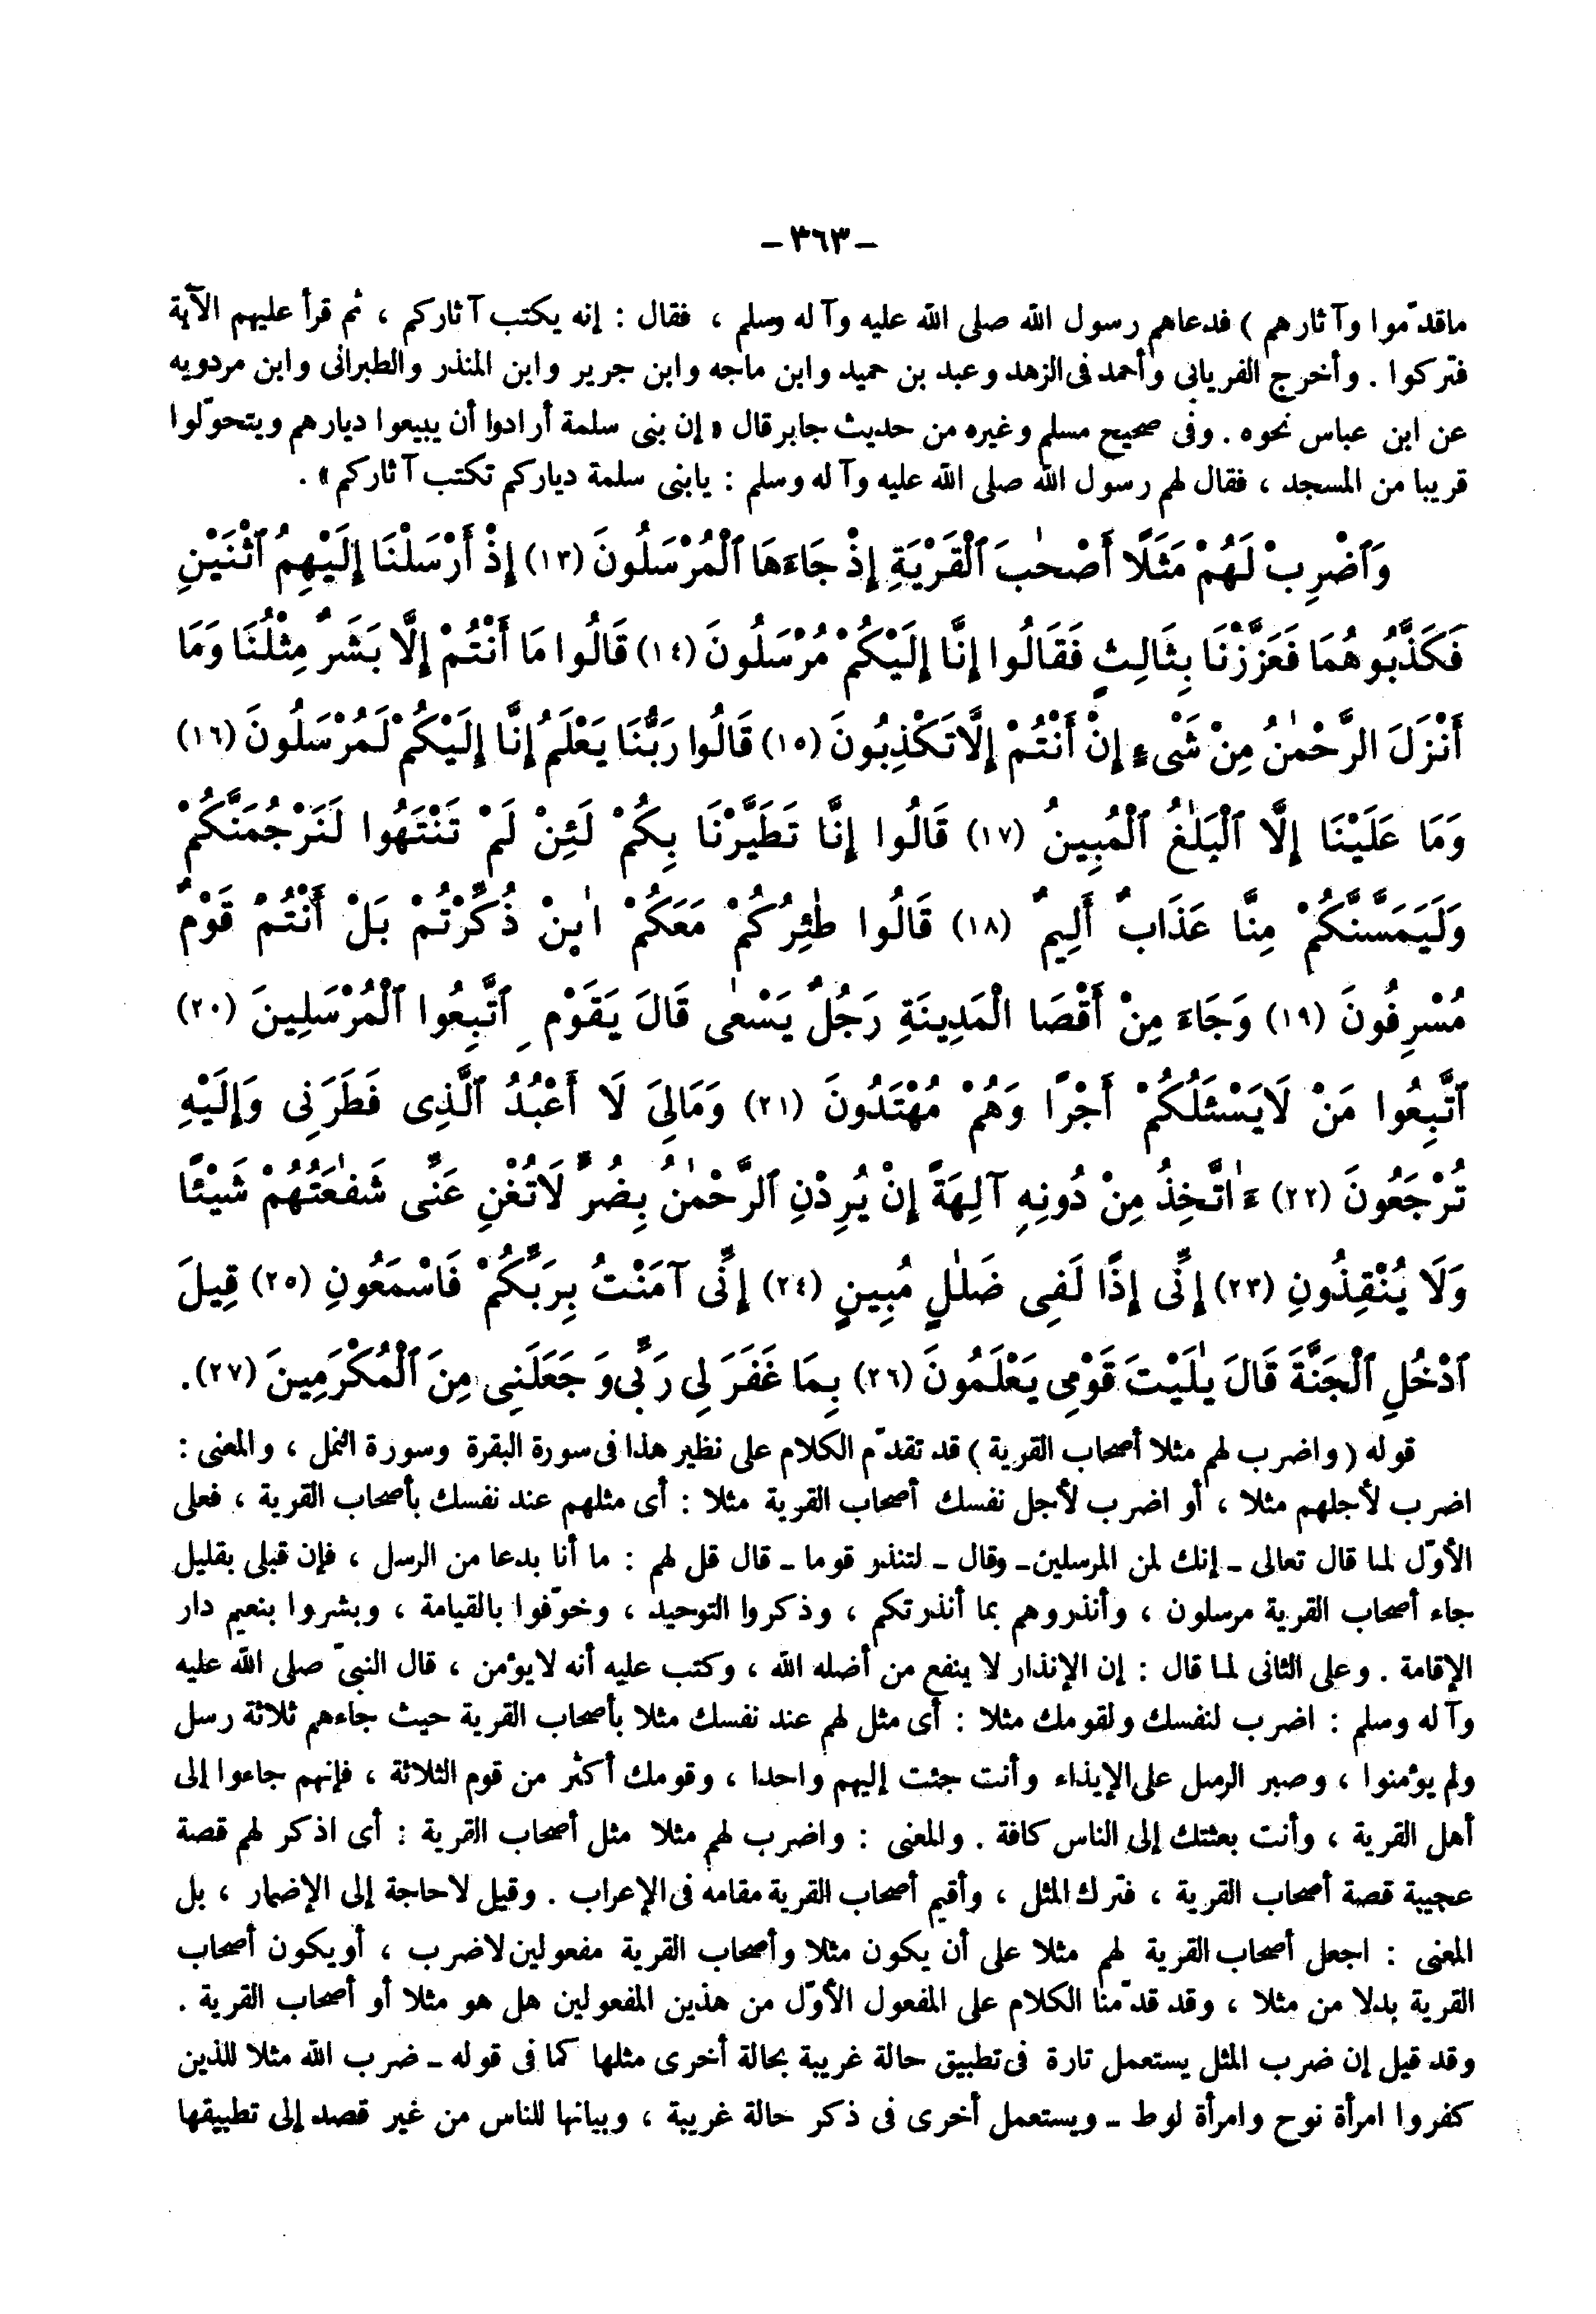 - ٣٦٣ -
ماقدّموا وآثارهم ) فدعاهم رسول الله صلى الله عليه وآله وسلم ، فقال : إنه يكتب آثاركم ، ثم قرأ عليهم الآية
فتركوا . وأخرج الفريابى وأحمد فى الزهد وعبد بن حميد وابن ماجه وابن جرير وابن المنذر والطبرانى وابن مردويه
عن ابن عباس نحوه . وفى صحيح مسلم وغيره من حديث جابر قال « إن بنى سلمة أرادوا أن يبيعوا ديارهم ويتحوّلوا
قريبا من المسجد ، فقال لهم رسول الله صلى الله عليه وآله وسلم : يابنى سلمة دياركم تكتب آثاركم » .
وَٱضْرِبْ لَهُمْ مَثَلًا أَصْحٰبَ ٱلْقَرْيَةِ إِذْ جَاءَهَا ٱلْمُرْسَلُونَ (١٣) إِذْ أَرْسَلْنَا إِلَيْهِمُ ٱثْنَيْنِ
فَكَذَّبُوهُمَا فَعَزَّزْنَا بِثَالِثٍ فَقَالُوا إِنَّا إِلَيْكُمْ مُرْسَلُونَ (١٤) قَالُوا مَا أَنْتُمْ إِلَّا بَشَرٌ مِثْلُنَا وَمَا
أَنْزَلَ الرَّحْمٰنُ مِنْ شَىْءٍ إِنْ أَنْتُمْ إِلَّا تَكْذِبُونَ (١٥) قَالُوا رَبُّنَا يَعْلَمُ إِنَّا إِلَيْكُمْ لَمُرْسَلُونَ (١٦)
وَمَا عَلَيْنَا إِلَّا ٱلْبَلٰغُ ٱلْمُبِينُ (١٧) قَالُوا إِنَّا تَطَيَّرْنَا بِكُمْ لَئِنْ لَمْ تَنْتَهُوا لَنَرْجُمَنَّكُمْ
وَلَيَمَسَّنَّكُمْ مِنَّا عَذَابٌ أَلِيمٌ (١٨) قَالُوا طٰئِرُكُمْ مَعَكُمْ اٰئِنْ ذُكِّرْتُمْ بَلْ أَنْتُمْ قَوْمٌ
مُسْرِفُونَ (١٩) وَجَاءَ مِنْ أَقْصَا الْمَدِينَةِ رَجُلٌ يَسْعٰى قَالَ يَقَوْمِ ٱتَّبِعُوا ٱلْمُرْسَلِينَ (٢٠)
ٱتَّبِعُوا مَنْ لَايَسْئَلُكُمْ أَجْرًا وَهُمْ مُهْتَدُونَ (٢١) وَمَالِىَ لَا أَعْبُدُ ٱلَّذِى فَطَرَنِى وَإِلَيْهِ
تُرْجَعُونَ (٢٢) ءَاٰتَّخِذُ مِنْ دُونِهِ آلِهَةً إِنْ يُرِدْنِ ٱلرَّحْمٰنُ بِضُرٍّ لَاتُغْنِ عَنِّى شَفٰعَتُهُمْ شَيْئًا
وَلَا يُنْقِذُونِ (٢٣) إِنِّى إِذًا لَفِى ضَلٰلٍ مُبِينٍ (٢٤) إِنِّى آمَنْتُ بِرَبِّكُمْ فَاسْمَعُونِ (٢٥) قِيلَ
ٱدْخُلِ ٱلْجَنَّةَ قَالَ يٰلَيْتَ قَوْمِى يَعْلَمُونَ (٢٦) بِمَا غَفَرَ لِى رَبِّى وَجَعَلَنِى مِنَ ٱلْمُكْرَمِينَ (٢٧) .
قوله ( واضرب لهم مثلا أصحاب القرية ) قد تقدّم الكلام على نظير هذا فى سورة البقرة وسورة النمل ، والمعنى :
اضرب لأجلهم مثلا ، أو اضرب لأجل نفسك أصحاب القرية مثلا : أى مثلهم عند نفسك بأصحاب القرية ، فعلى
الأوّل لما قال تعالى ـ إنك لمن المرسلين ـ وقال ـ لتنذر قوما ـ قال قل لهم : ما أنا بدعا من الرسل ، فإن قبلى بقليل
جاء أصحاب القرية مرسلون ، وأنذروهم بما أنذرتكم ، وذكروا التوحيد ، وخوّفوا بالقيامة ، وبشروا بنعيم دار
الإقامة . وعلى الثانى لما قال : إن الإنذار لا ينفع من أضله الله ، وكتب عليه أنه لايؤمن ، قال النبىّ صلى الله عليه
وآله وسلم : اضرب لنفسك ولقومك مثلا : أى مثل لهم عند نفسك مثلا بأصحاب القرية حيث جاءهم ثلاثة رسل
ولم يؤمنوا ، وصبر الرسل على الإيذاء وأنت جئت إليهم واحدا ، وقومك أكثر من قوم الثلاثة ، فإنهم جاءوا إلى
أهل القرية ، وأنت بعثتك إلى الناس كافة . والمعنى : واضرب لهم مثلا مثل أصحاب القرية : أى اذكر لهم قصة
عجيبة قصة أصحاب القرية ، فترك المثل ، وأقيم أصحاب القرية مقامه فى الإعراب . وقيل لاحاجة إلى الإضمار ، بل
المعنى : اجعل أصحاب القرية لهم مثلا على أن يكون مثلا وأصحاب القرية مفعولين لاضرب ، أو يكون أصحاب
القرية بدلا من مثلا ، وقد قدّمنا الكلام على المفعول الأوّل من هذين المفعولين هل هو مثلا أو أصحاب القرية .
وقد قيل إن ضرب المثل يستعمل تارة فى تطبيق حالة غريبة بحالة أخرى مثلها كما فى قوله ـ ضرب الله مثلا للذين
كفروا امرأة نوح وامرأة لوط ـ ويستعمل أخرى فى ذكر حالة غريبة ، وبيانها للناس من غير قصد إلى تطبيقها